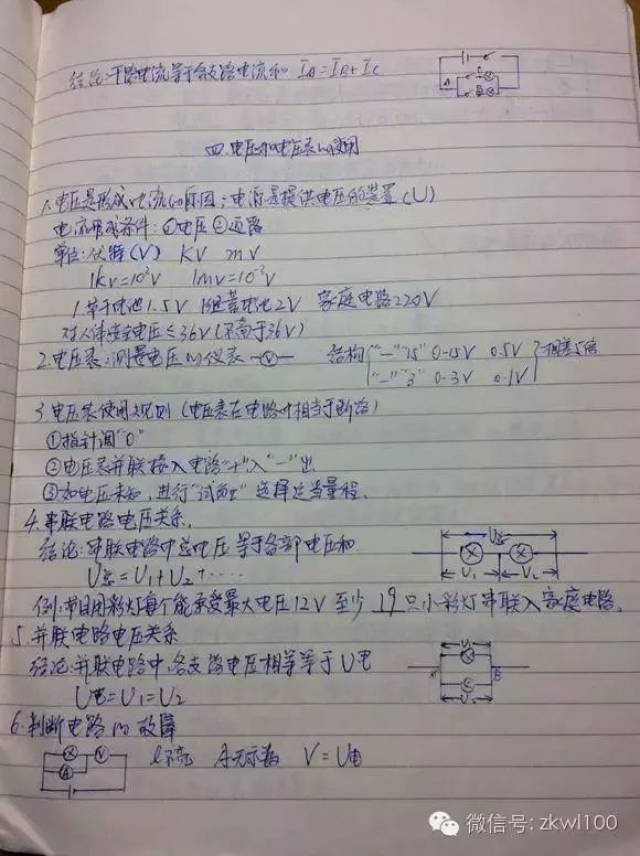 结论:干路电流等于各支路电流和 IA=IB+IC
四.电压和电压表的使用
1.电压是形成电流的原因;电源是提供电压的装置(U)
电流形成条件:①电压②通路
单位:伏特(V) KV mV
1kv=10³V 1mv=10⁻³V
1节干电池1.5V 1组蓄电池2V 家庭电路220V
对人体安全电压≤36V(不高于36V)
2.电压表:测量电压的仪表 V 结构 "-""15" 0-15V 0.5V 相差5倍
"-""3" 0-3V 0.1V
3.电压表使用规则(电压表在电路中相当于断路)
①指针调"0"
②电压表并联接入电路"+"入"-"出
③如电压未知,进行"试触"选择适当量程.
4.串联电路电压关系.
结论:串联电路中总电压等于各部电压和
U总=U1+U2+.....
U总
U1 U2
例:节日用彩灯每个能承受最大电压12V 至少 19 只小彩灯串联入家庭电路.
5.并联电路电压关系
结论:并联电路中,各支路电压相等等于U电
U电=U1=U2
6.判断电路的故障
V
A
L不亮 A无示数 V=U电
微信号: zkwl100